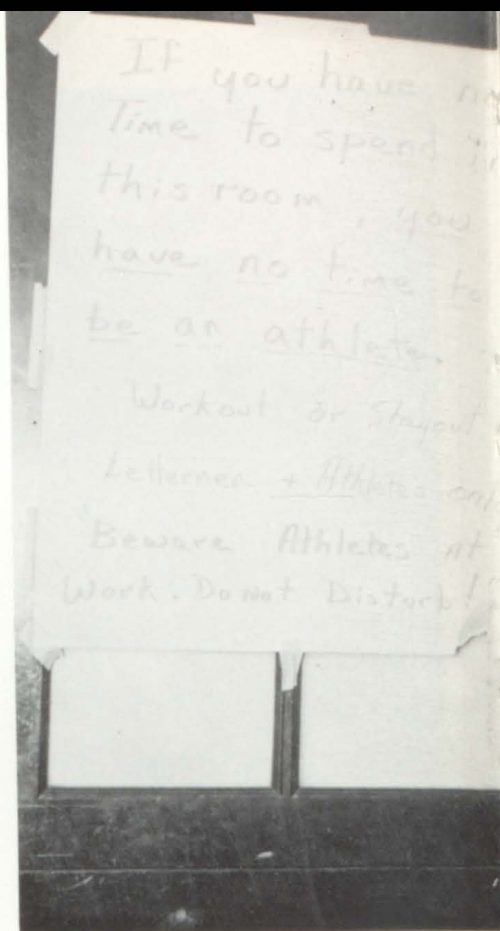 If you have no
Time to spend in
this room, you
have no time to
be an athlete.
Workout or Stayout
Lettermen + Athletes only
Beware Athletes At
Work. Do Not Disturb!